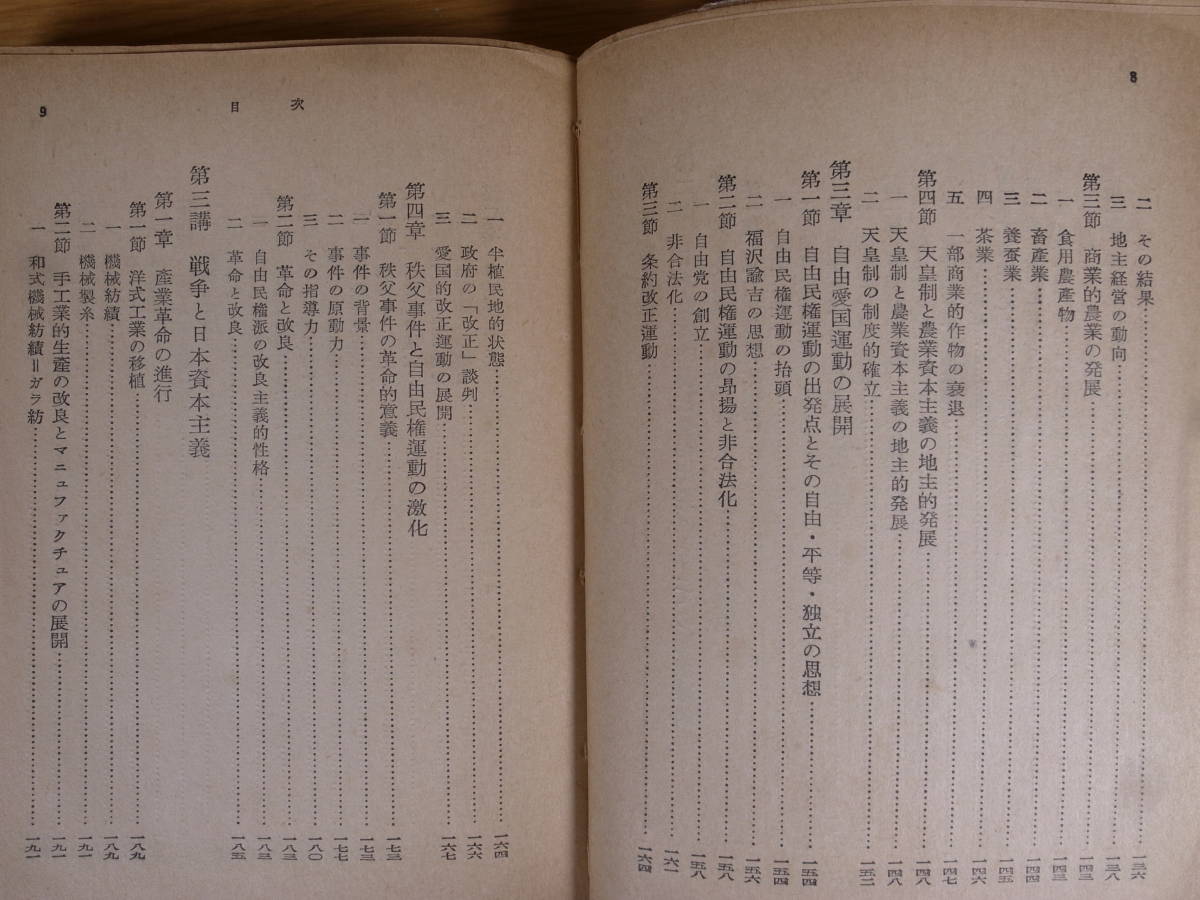 8
二 その結果……一三六
三 地主経営の動向……一三八
第三節 商業的農業の発展……一四三
一 食用農産物……一四三
二 畜産業……一四四
三 養蚕業……一四五
四 茶業……一四六
五 一部商業的作物の衰退……一四七
第四節 天皇制と農業資本主義の地主的発展……一四八
一 天皇制と農業資本主義の地主的発展……一四八
二 天皇制の制度的確立……一五二
第三章 自由愛国運動の展開
第一節 自由民権運動の出発点とその自由・平等・独立の思想……一五四
一 自由民権運動の抬頭……一五四
二 福沢諭吉の思想……一五六
第二節 自由民権運動の昂揚と非合法化……一五八
一 自由党の創立……一五八
二 非合法化……一六一
第三節 条約改正運動……一六四
9
目次
一 半植民地的状態……一六四
二 政府の「改正」談判……一六六
三 愛国的改正運動の展開……一六七
第四章 秩父事件と自由民権運動の激化
第一節 秩父事件の革命的意義……一七三
一 事件の背景……一七三
二 事件の原動力……一七七
三 その指導力……一八〇
第二節 革命と改良……一八三
一 自由民権派の改良主義的性格……一八三
二 革命と改良……一八五
第三講 戦争と日本資本主義
第一章 産業革命の進行
第一節 洋式工業の移植……一八九
一 機械紡績……一八九
二 機械製糸……一九一
第二節 手工業的生産の改良とマニュファクチュアの展開……一九一
一 和式機械紡績=ガラ紡……一九一